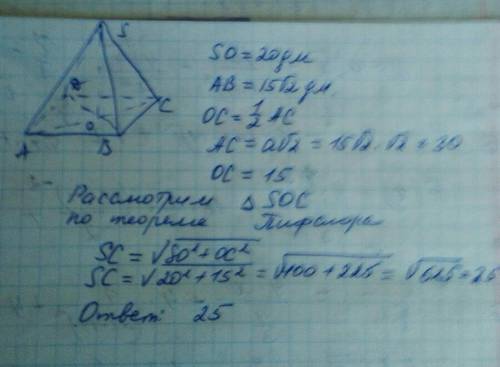 S
A
B
C
O
SO = 20 дм
AB = 15√2 дм.
OC = 1/2 AC
AC = a√2 = 15√2 · √2 = 30
OC = 15
Рассмотрим △ SOC
по теореме Пифагора
SC = √SO² + OC²
SC = √20² + 15² = √400 + 225 = √625 = 25
Ответ: 25